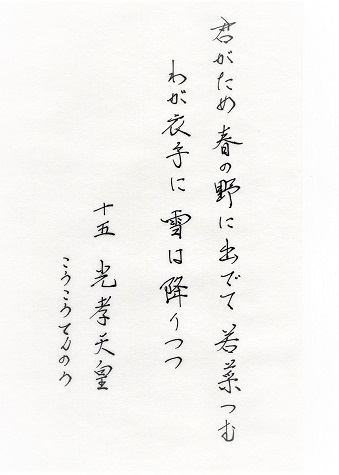 君がため 春の野に出でて 若菜つむ
わが衣手に 雪は降りつつ
十五 光孝天皇
こうこうてんのう